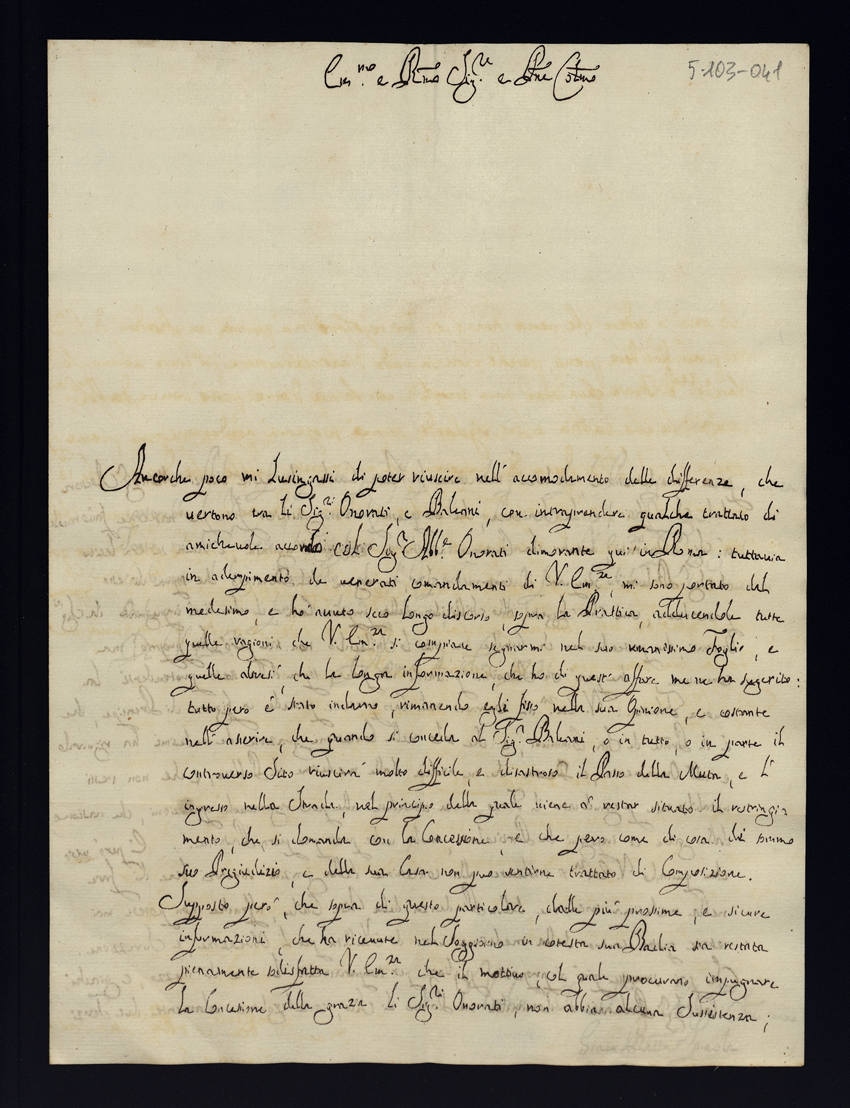 Em.mo e R.mo Sig.re e P.ne Col.mo
5-103-041
Ancorche poco mi Lusingassi di poter riuscire nell' accomodamento delle differenze, che
vertono tra li Sig.ri Onorati, e Baleani, con intraprendere qualche trattato di
amicheuole accordo col Sig.r Abb.e Onorati dimorante qui in Roma: tuttauia
in adempimento de venerati comandamenti di V. Em.za, mi sono portato dal
medesimo, e ho auuto seco Longo discorso, sopra la Prattica, adducendole tutte
quelle ragioni che V. Em.za si compiace segnarmi nel suo umanissimo Foglio, e
quelle altresi, che la Longa informazione, che ho di quest' affare me ne ha sugerito:
tutto pero è stato indarno, rimanendo egli fisso nella sua Opinione, e costante
nell' asserire, che quando si conceda al Sig.r Baleani, o in tutto, o in parte il
controuerso Sito riuscirà molto difficile, e disastroso il Passo della Muta, e l'
ingresso nella Strada, nel principio della quale uiene à restar situato il restringi
mento, che si domanda con la Concessione, e che pero come di cosa di sommo
suo Pregiudizio, e della sua Casa non puo sentirne trattato di Composizione.
Supposto però, che sopra di questo particolare, dalle più prossime, e sicure
informazioni, che ha riceuute nel Soggiorno in cotesta sua Badia sia restata
pienamente sodisfatta V. Em.za che il mottiuo, col quale procurano impugnare
la Concessione della grazia li Sig.ri Onorati, non abbia alcuna Sussistenza;